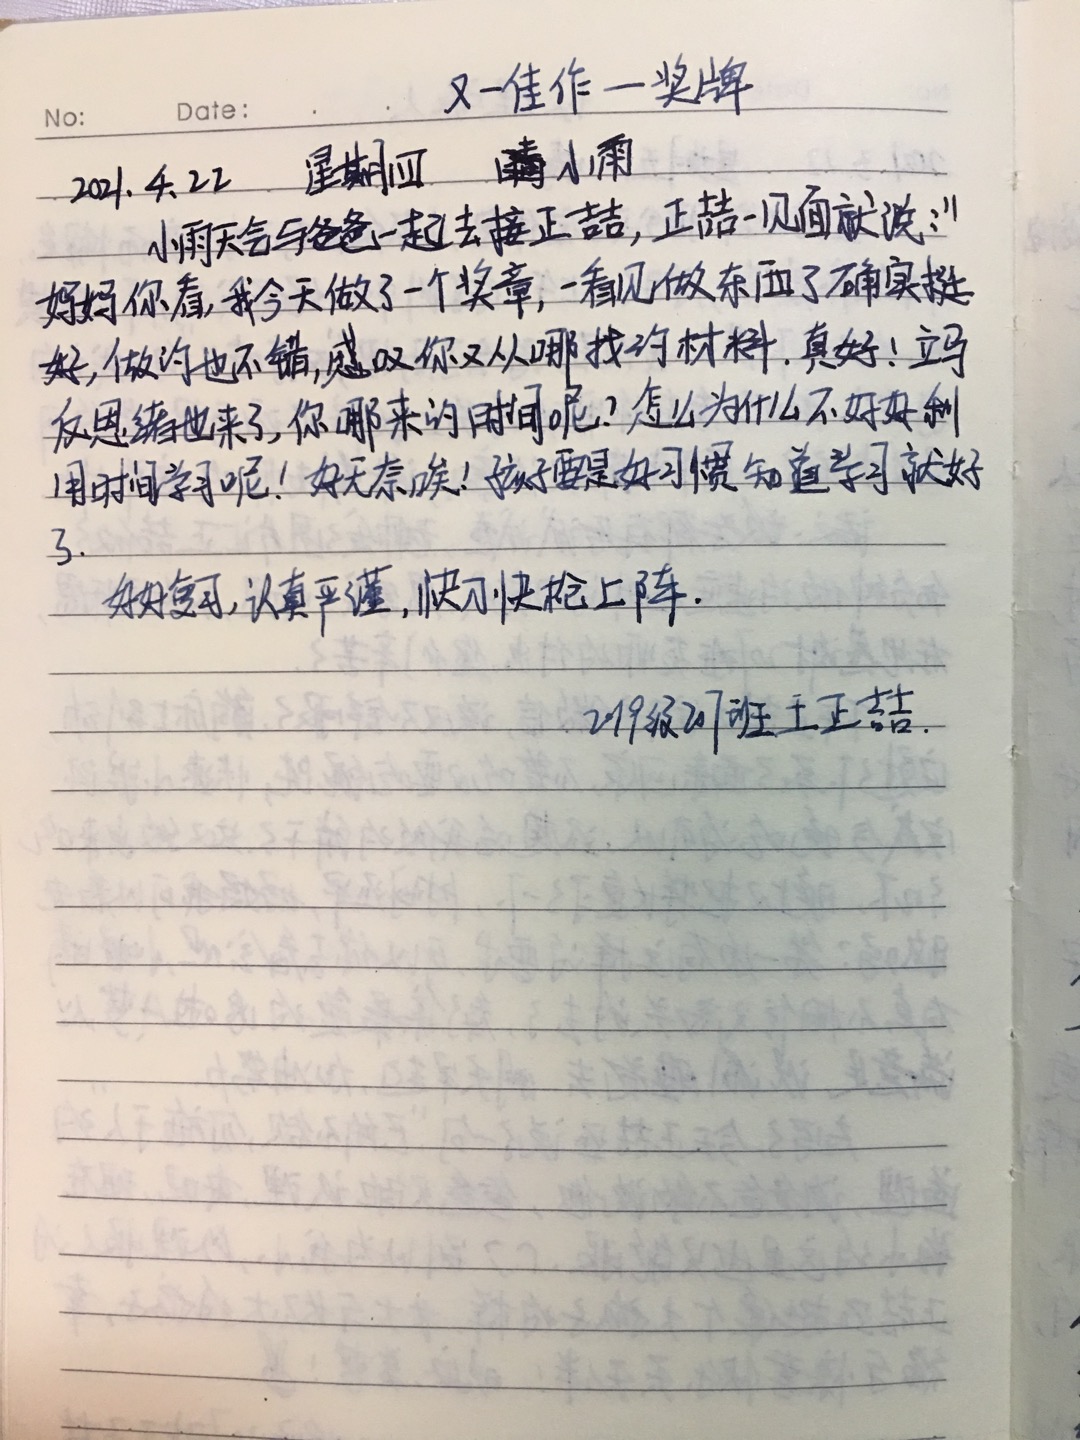 又一佳作一奖牌
No: Date:
2021.4.22 星期四 小雨
小雨天气与爸爸一起去接正喆,正喆一见面就说:"
妈妈你看,我今天做了一个奖章,一看见做东西了确实挺
好,做的也不错,感叹你又从哪找的材料.真好!立马
反思绪也来了,你哪来的时间呢?怎么为什么不好好利
用时间学习呢!好无奈唉!孩子要是好习惯知道学习就好
了.
好好复习,认真严谨,快刀快枪上阵.
2019级207班王正喆.